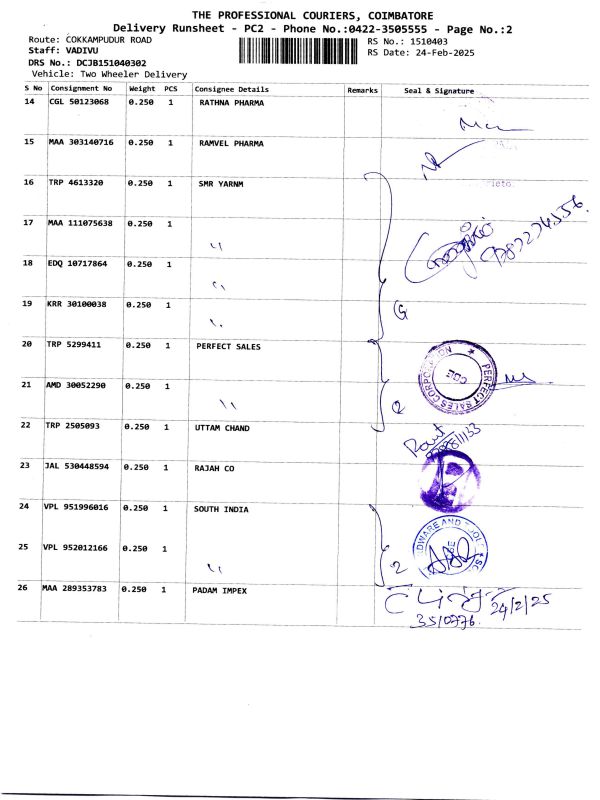 THE PROFESSIONAL COURIERS, COIMBATORE
Delivery Runsheet - PC2 - Phone No.:0422-3505555 - Page No.:2
Route: COKKAMPUDUR ROAD
RS No.: 1510403
Staff: VADIVU
RS Date: 24-Feb-2025
DRS No.: DCJB151040302
Vehicle: Two Wheeler Delivery
S No Consignment No Weight PCS Consignee Details Remarks Seal & Signature
14 CGL 50123068 0.250 1 RATHNA PHARMA
15 MAA 303140716 0.250 1 RAMVEL PHARMA
16 TRP 4613320 0.250 1 SMR YARNM
17 MAA 111075638 0.250 1 ''
18 EDQ 10717864 0.250 1 ''
19 KRR 30100038 0.250 1 ''
20 TRP 5299411 0.250 1 PERFECT SALES
PERFECT SALES CORPORATION
CBE
21 AMD 30052290 0.250 1 ''
2
22 TRP 2505093 0.250 1 UTTAM CHAND
23 JAL 530448594 0.250 1 RAJAH CO
24 VPL 951996016 0.250 1 SOUTH INDIA
25 VPL 952012166 0.250 1 ''
2
26 MAA 289353783 0.250 1 PADAM IMPEX
24/2/25
3510776